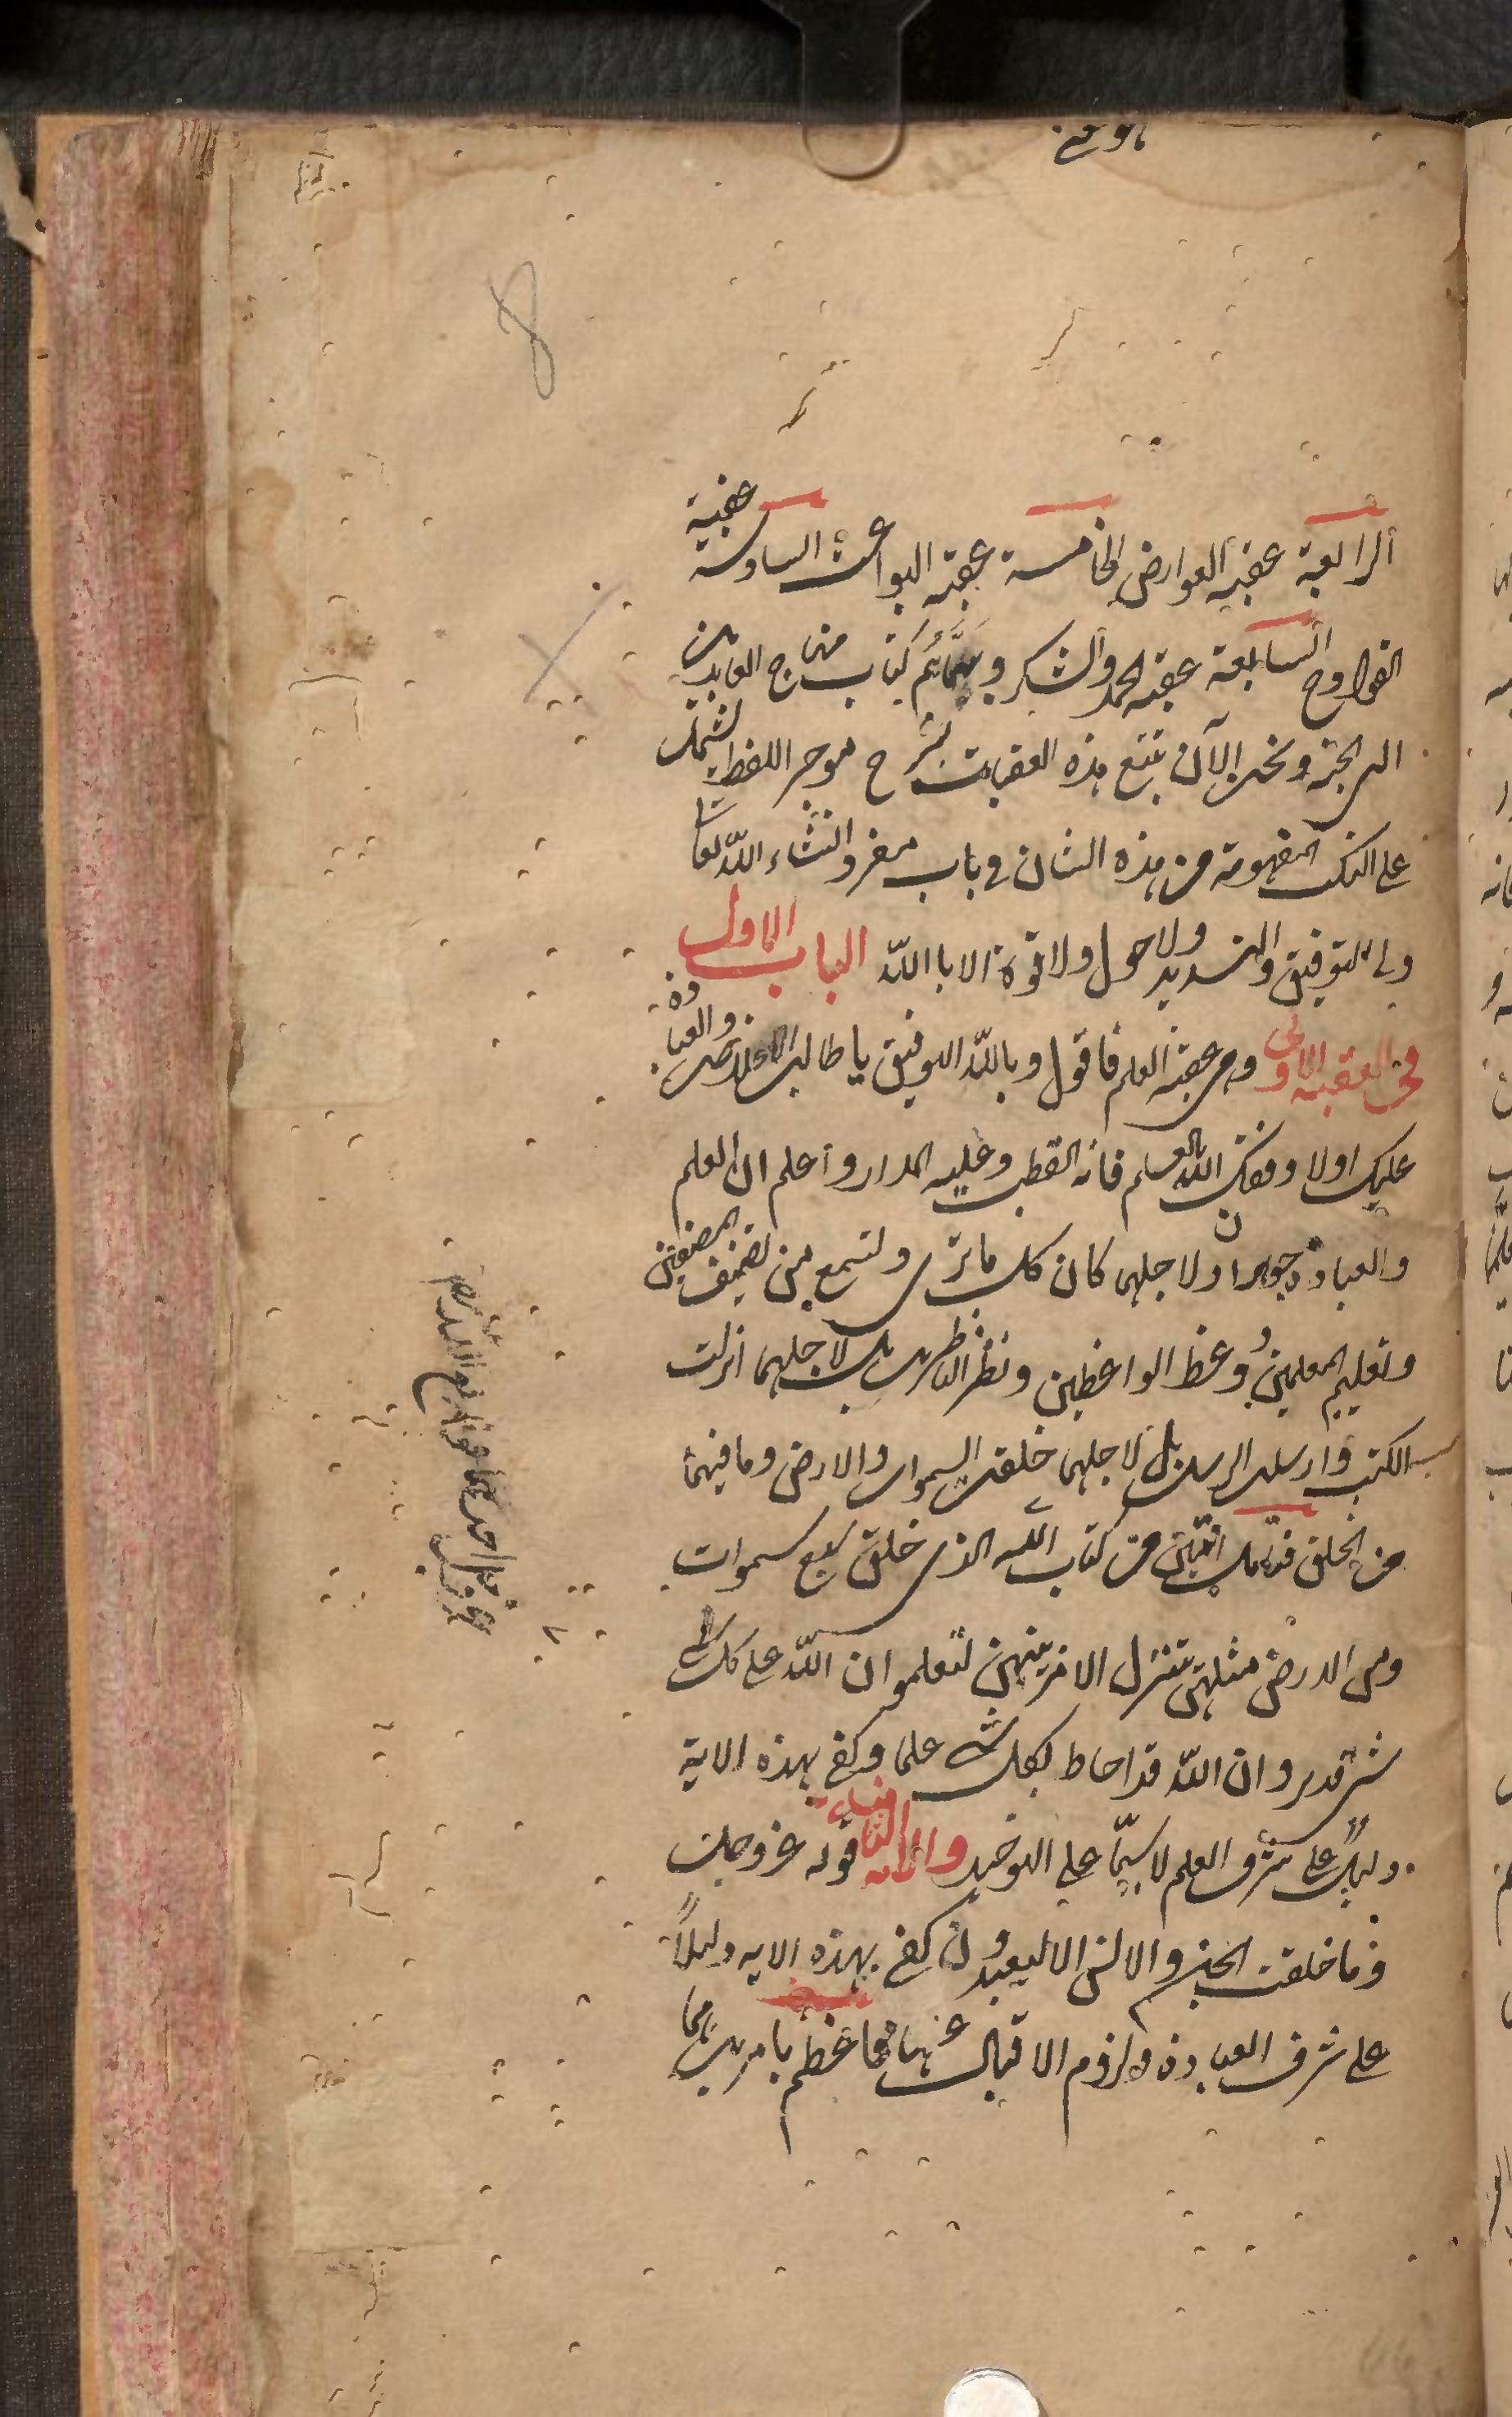 الرابعة عقبة العوارض الخامسة عقبة البواعث السادسة عقبة
القوادح السابعة عقبة الحمد والشكر وبتمامها يتم كتاب منهاج العابدين
الى الجنة ونحن الآن نتبع هذه العقبات بشرح موجز اللفظ يشتمل
على النكت المفهومة من هذه الشان فى باب مفرد انشاء الله تعالى
ولى التوفيق والتسديد ولا حول ولا قوة الا باالله الباب الاول
فى العقبة الاولى وهى عقبة العلم فاقول وبالله التوفيق يا طالب الاخلاص والعبادة
عليك اولا وفقك الله بالعلم فانه القطب وعليه المدار واعلم ان العلم
والعبادة جوهران ولاجلهما كان كل ما ترى وتسمع من تصنيف المصنفين
وتعليم المعلمين ووعظ الواعظين ونظر الناظرين بل لاجلهما انزلت
الكتب وارسلت الرسل بل لاجلهما خلقت السموات والارض وما فيهما
من الخلق فتامل آيتين من كتاب الله الله الذى خلق سبع سموات
ومن الارض مثلهن يتنزل الامر بينهن لتعلموا ان الله على كل
شئ قدير وان الله قد احاط بكل شئ علما وكفى بهذه الاية
دليلاً على شرف العلم لا سيّما على التوحيد والاية الثانية قوله عزوجل
وما خلقت الجن والانس الا ليعبدون كفى بهذه الاية دليلاً
على شرف العبادة ولزوم الاقبال عليها فاعظم بامرين هما